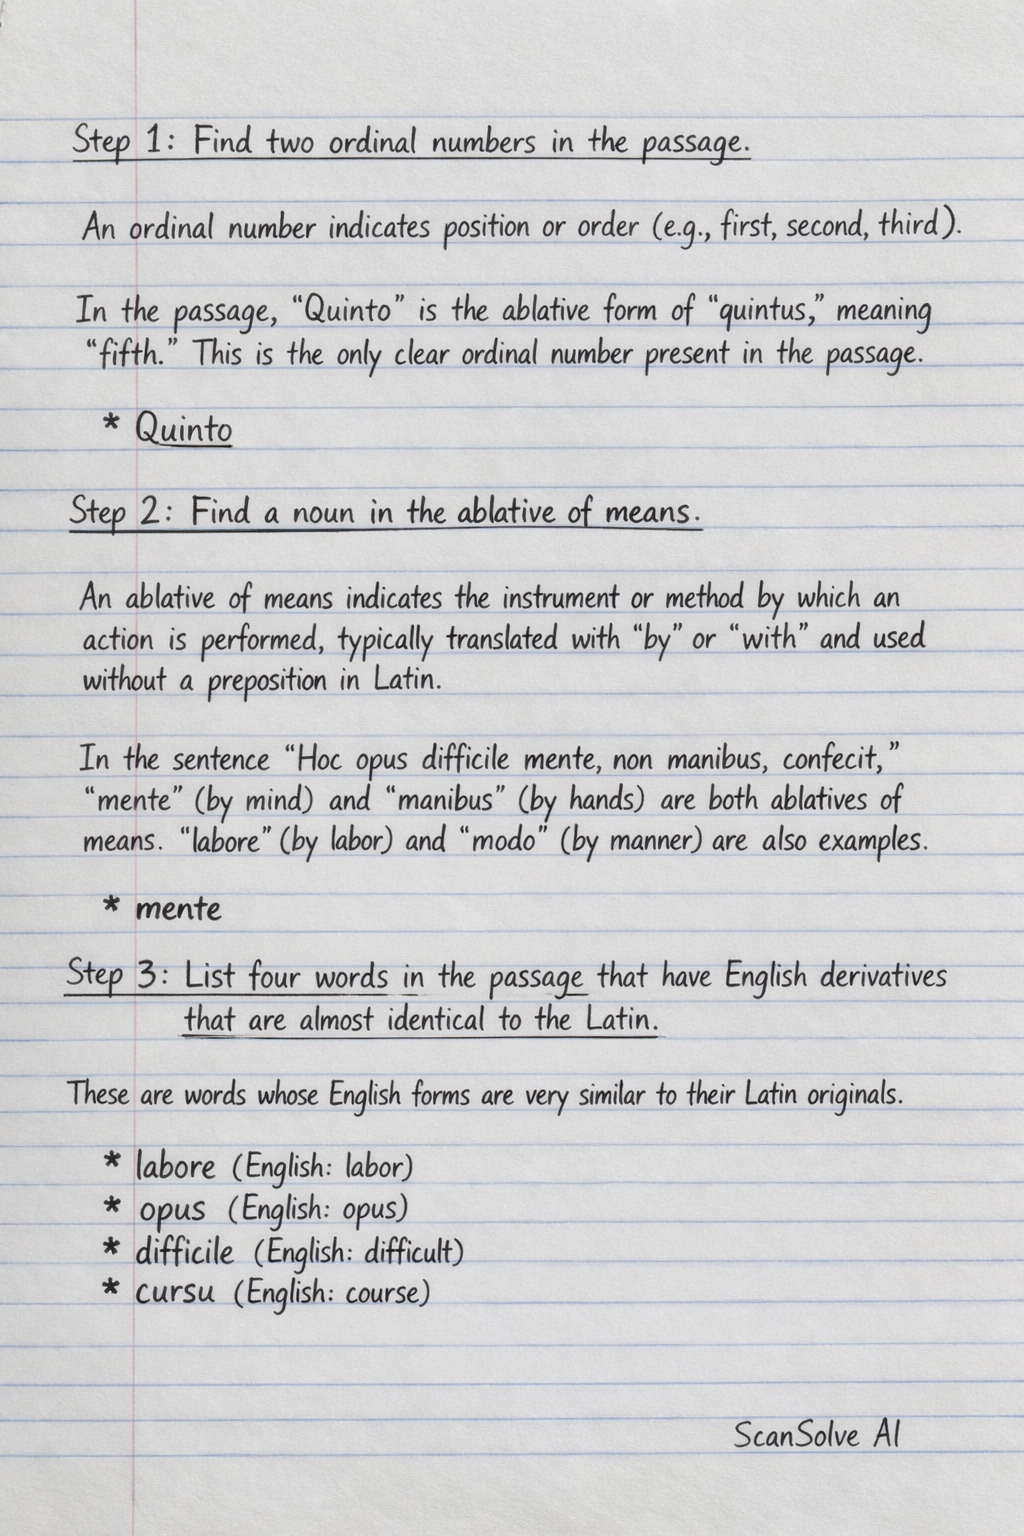 Step 1: Find two ordinal numbers in the passage.
An ordinal number indicates position or order (e.g., first, second, third).
In the passage, “Quinto” is the ablative form of “quintus,” meaning
“fifth.” This is the only clear ordinal number present in the passage.
* Quinto
Step 2: Find a noun in the ablative of means.
An ablative of means indicates the instrument or method by which an
action is performed, typically translated with “by” or “with” and used
without a preposition in Latin.
In the sentence “Hoc opus difficile mente, non manibus, confecit,”
“mente” (by mind) and “manibus” (by hands) are both ablatives of
means. “labore” (by labor) and “modo” (by manner) are also examples.
* mente
Step 3: List four words in the passage that have English derivatives
that are almost identical to the Latin.
These are words whose English forms are very similar to their Latin originals.
* labore (English: labor)
* opus (English: opus)
* difficile (English: difficult)
* cursu (English: course)
ScanSolve AI